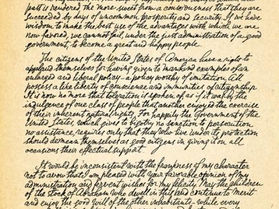 past is rendered the more sweet from a consciousness that they are
succeeded by days of uncommon prosperity and security. If we have
wisdom to make the best use of the advantages with which we are
now favored, we cannot fail, under the just administration of a good
government, to become a great and happy people.
The citizens of the United States of America have a right to
applaud themselves for having given to mankind examples of an
enlarged and liberal policy—a policy worthy of imitation. All
possess alike liberty of conscience and immunities of citizenship.
It is now no more that toleration is spoken of as if it was by the
indulgence of one class of people that another enjoyed the exercise
of their inherent natural rights, for happily the Government of the
United States, which gives to bigotry no sanction, to persecution
no assistance, requires only that they who live under its protection
should demean themselves as good citizens in giving it on all
occasions their effectual support.
It would be inconsistent with the frankness of my character
not to avow that I am pleased with your favorable opinion of my
administration and fervent wishes for my felicity. May the children
of the stock of Abraham who dwell in this land continue to merit
and enjoy the good will of the other inhabitants—while every